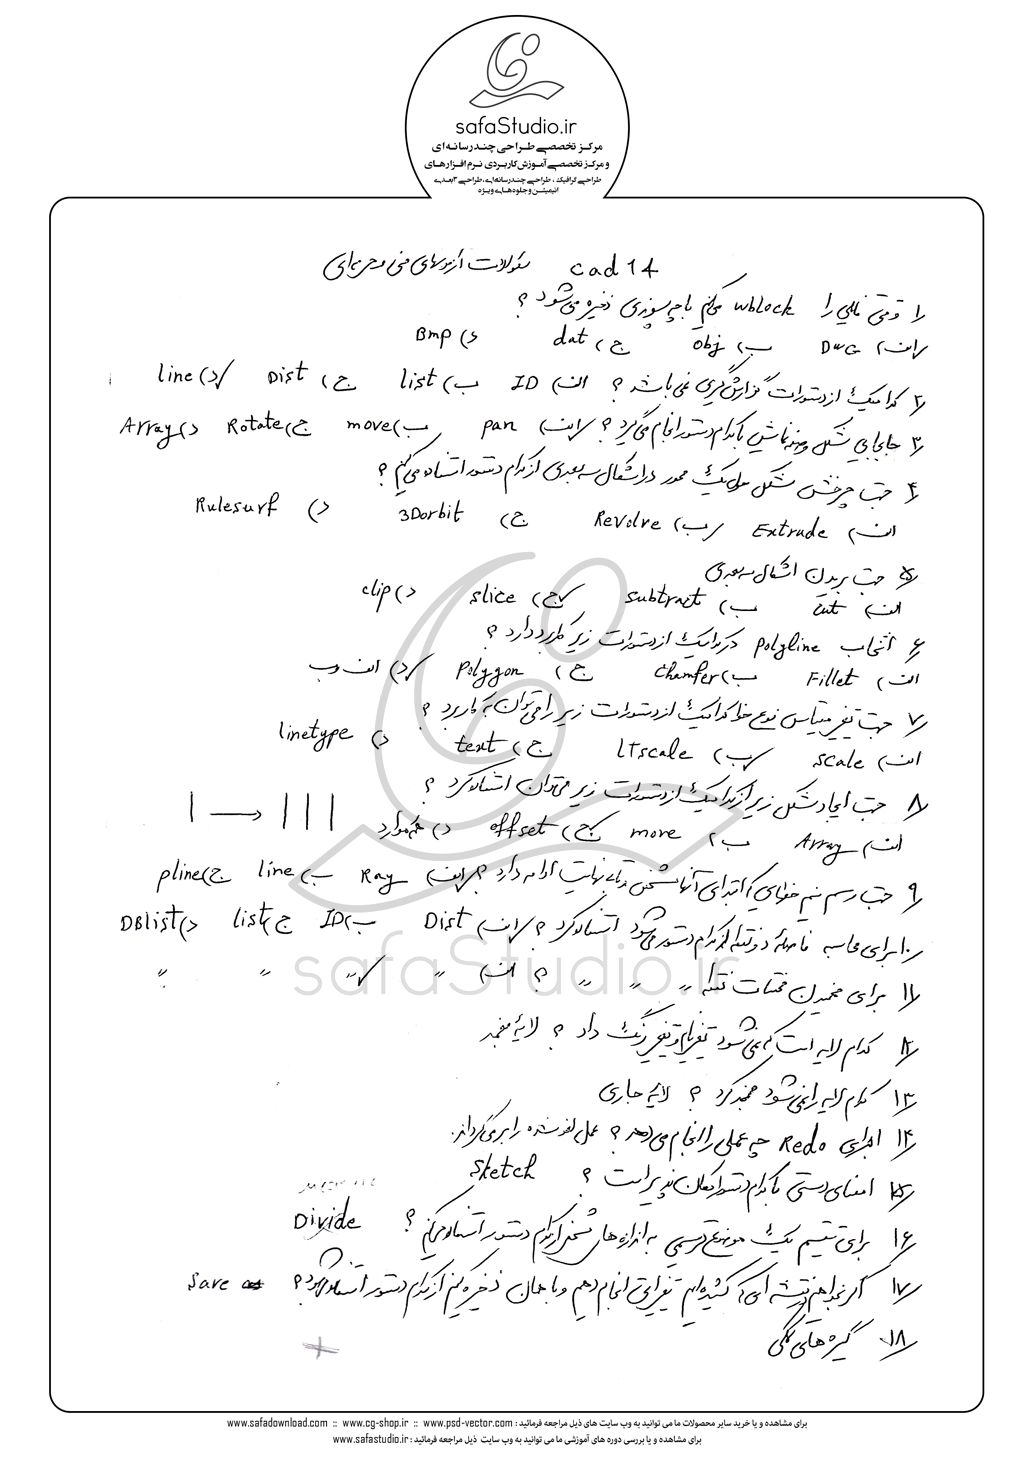 safaStudio.ir
مرکز تخصصی طراحی چندرسانه‌ای
و مرکز تخصصی آموزش کاربردی نرم افزارهای
طراحی گرافیک ، طراحی چندرسانه‌ای، طراحی ۳بعدی
انیمیشن و جلوه‌های ویژه
cad 14 سئوالات آزمونهای فنی و حرفه‌ای
۱/ وقتی فایلی را wblock می‌کنیم با چه پسوندی ذخیره می‌شود ؟
الف) DWG ب) obj ج) dat د) Bmp
۲/ کدامیک از دستورات گزارش‌گیری نمی باشد ؟ الف) ID ب) list ج) Dist د) line
۳/ جابجایی شکل و صفحه نمایش با کدام دستور انجام می‌گیرد ؟ الف) pan ب) move ج) Rotate د) Array
۴/ جهت چرخش شکل حول یک محور در اشکال سه بعدی از کدام دستور استفاده می‌کنیم ؟
الف) Extrude ب) Revolve ج) 3Dorbit د) Rulesurf
۵/ جهت بریدن اشکال سه بعدی
الف) cut ب) subtract ج) slice د) clip
۶/ انتخاب polyline در کدامیک از دستورات زیر کاربرد دارد ؟
الف) Fillet ب) chamfer ج) polygon د) الف و ب
۷/ جهت تغییر مقیاس نوع خط کدامیک از دستورات زیر را می توان به کار برد ؟
الف) scale ب) LTscale ج) text د) linetype
۸/ جهت ایجاد شکل زیر از کدامیک از دستورات زیر می‌توان استفاده کرد ؟
الف) Array ب) move ج) offset د) همه موارد
۹/ جهت رسم نیم خطهایی که ابتدای آنها مشخص و تا بی نهایت ادامه دارد ؟ الف) Ray ب) line ج) pline
۱۰/ برای محاسبه فاصلهٔ دو نقطه از کدام دستور می‌شود استفاده کرد ؟ الف) Dist ب) ID ج) list د) DBlist
۱۱/ برای فهمیدن مختصات نقطه " " " ؟ الف) " " " "
۱۲/ کدام لایه است که نمی‌شود تغییر نام و تغییر رنگ داد ؟ لایهٔ منجمد
۱۳/ کدام لایه را نمی‌شود منجمد کرد ؟ لایه جاری
۱۴/ اجرای Redo چه عملی را انجام می‌دهد ؟ عمل لغو شده را برمی‌گرداند.
۱۵/ امضای دستی با کدام دستور امکان پذیر است ؟ sketch
۱۶/ برای تقسیم یک موضوع ترسیمی به اندازه های مشخص از کدام دستور استفاده می‌کنیم ؟ Divide
۱۷/ اگر بخواهیم در نقشه ای که کشیده‌ایم تغییراتی انجام دهیم و با همان ذخیره کنیم از کدام دستور استفاده می‌شود ؟ save
۱۸/ گیره های کمکی
safaStudio.ir
برای مشاهده و یا خرید سایر محصولات ما می توانید به وب سایت های ذیل مراجعه فرمائید : www.safadownload.com :: www.cg-shop.ir :: www.psd-vector.com
برای مشاهده و یا بررسی دوره های آموزشی ما می توانید به وب سایت ذیل مراجعه فرمائید : www.safastudio.ir